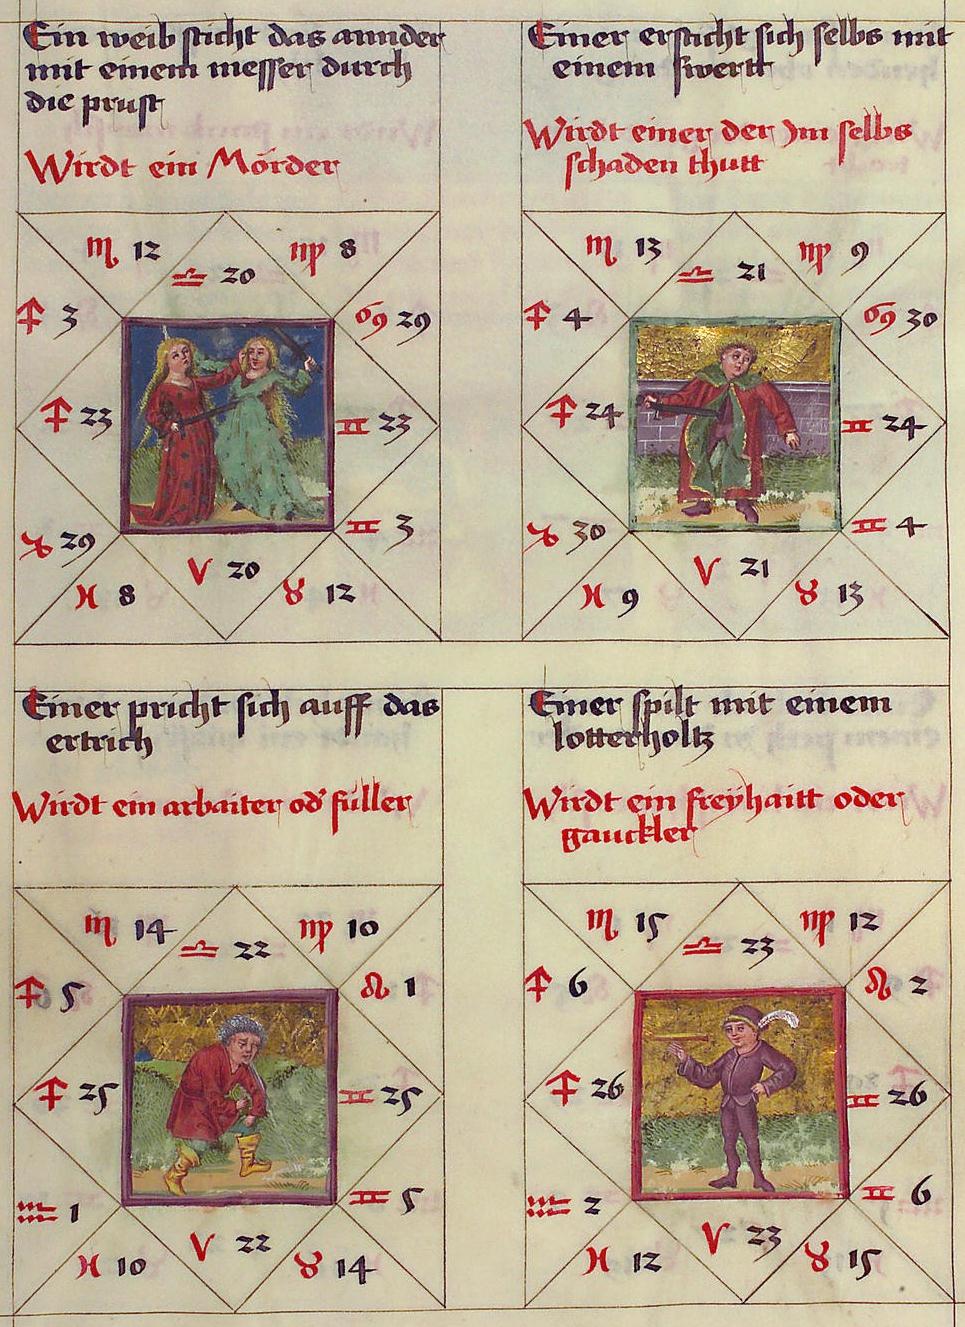 Ein weib sticht das annder
mit einem messer durch
die prust
Wirdt ein Mörder
♏ 12
♎ 20
♍ 8
♐ 3
♋ 29
♐ 23
♊ 23
♑ 29
♊ 3
♓ 8
♈ 20
♉ 12
Einer ersticht sich selbs mit
einem swertt
Wirdt einer der Im selbs
schaden thutt
♏ 13
♎ 21
♍ 9
♐ 4
♋ 30
♐ 24
♊ 24
♑ 30
♊ 4
♓ 9
♈ 21
♉ 13
Einer pricht sich auff das
ertrich
Wirdt ein arbaiter od' füller
♏ 14
♎ 22
♍ 10
♐ 5
♌ 1
♐ 25
♊ 25
♒ 1
♊ 5
♓ 10
♈ 22
♉ 14
Einer spilt mit einem
lotterholtz
Wirdt ein freÿhaitt oder
gauckler
♏ 15
♎ 23
♍ 12
♐ 6
♌ 2
♐ 26
♊ 26
♒ 2
♊ 6
♓ 12
♈ 23
♉ 15